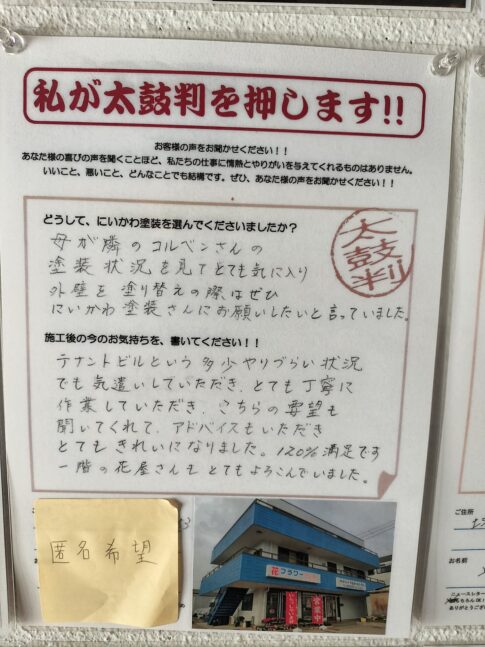 私が太鼓判を押します!!
お客様の声をお聞かせください！！
あなた様の喜びの声を聞くことほど、私たちの仕事に情熱とやりがいを与えてくれるものはありません。
いいこと、悪いこと、どんなことでも結構です。ぜひ、あなた様の声をお聞かせください！！
どうして、にいかわ塗装を選んでくださいましたか？
太鼓判
母が隣のコルベンさんの
塗装状況を見てとても気に入り
外壁を塗り替えの際はぜひ
にいかわ塗装さんにお願いしたいと言っていました。
施工後の今のお気持ちを、書いてください！！
テナントビルという多少やりづらい状況
でも気遣いしていただき、とても丁寧に
作業していただき、こちらの要望も
聞いてくれて、アドバイスもいただき
とてもきれいになりました。120%満足です
一階の花屋さんもとてもよろこんでいました。
匿名希望
花フラワー
営業中
ご住所
お名前
ニュースレター
ありがとうござい